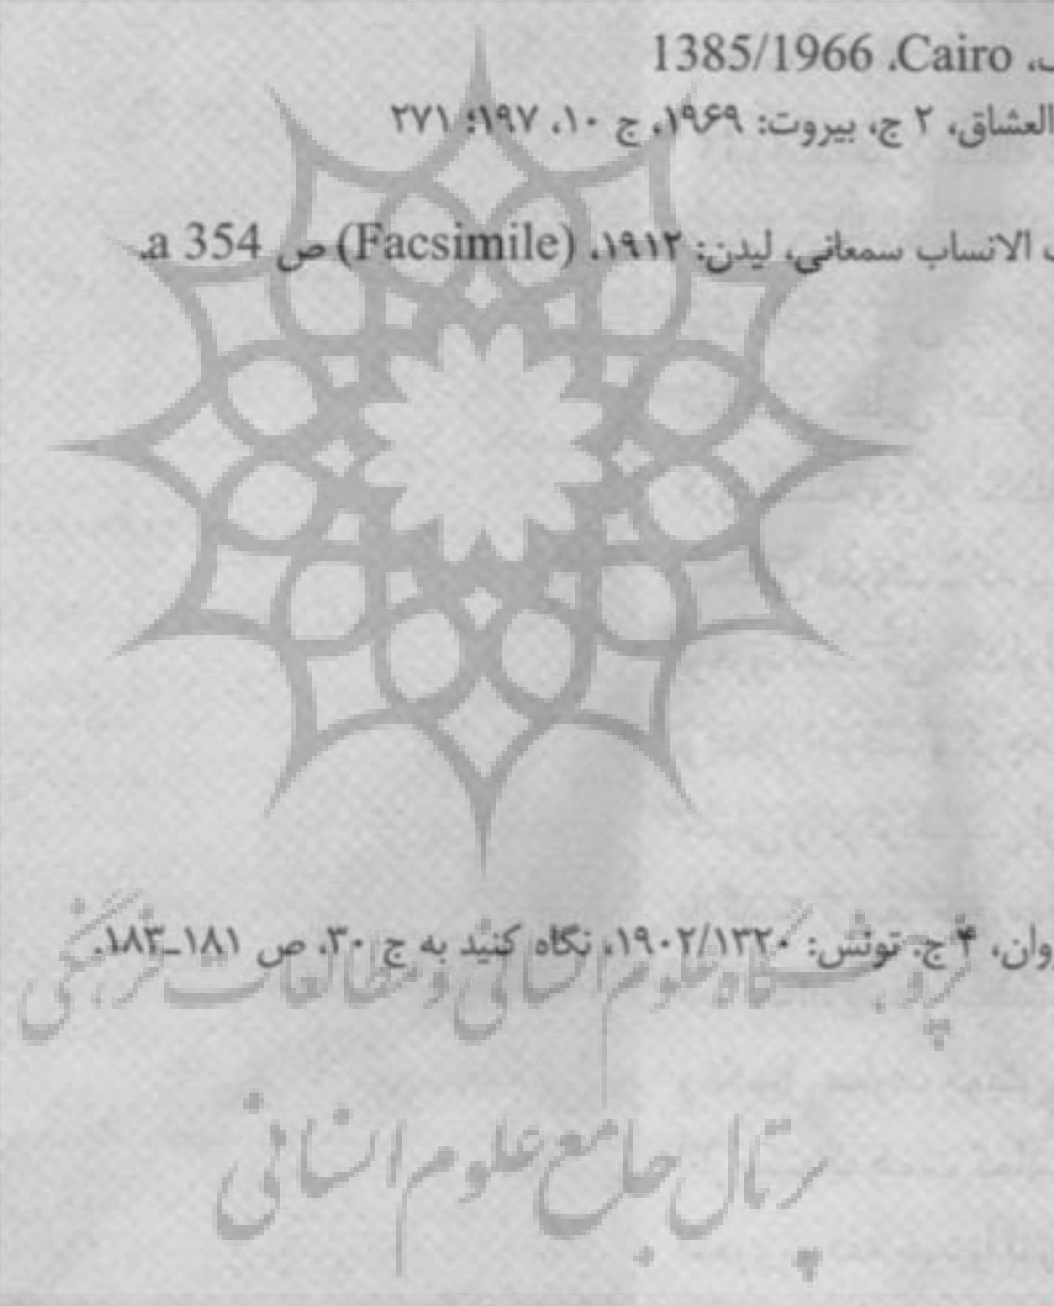 1385/1966 .Cairo ،
العشاق، ۲ ج، بیروت: ۱۹۶۹، ج ۱۰، ۱۹۷؛ ۲۷۱
الانساب سمعانی، لیدن: ۱۹۱۲، (Facsimile) ص 354 a.
وان، ۴ ج، تونس: ۱۹۰۲/۱۳۲۰، نگاه کنید به ج ۳۰، ص ۱۸۱ـ۱۸۳.
پژوهشگاه علوم انسانی و مطالعات فرهنگی
پرتال جامع علوم انسانی